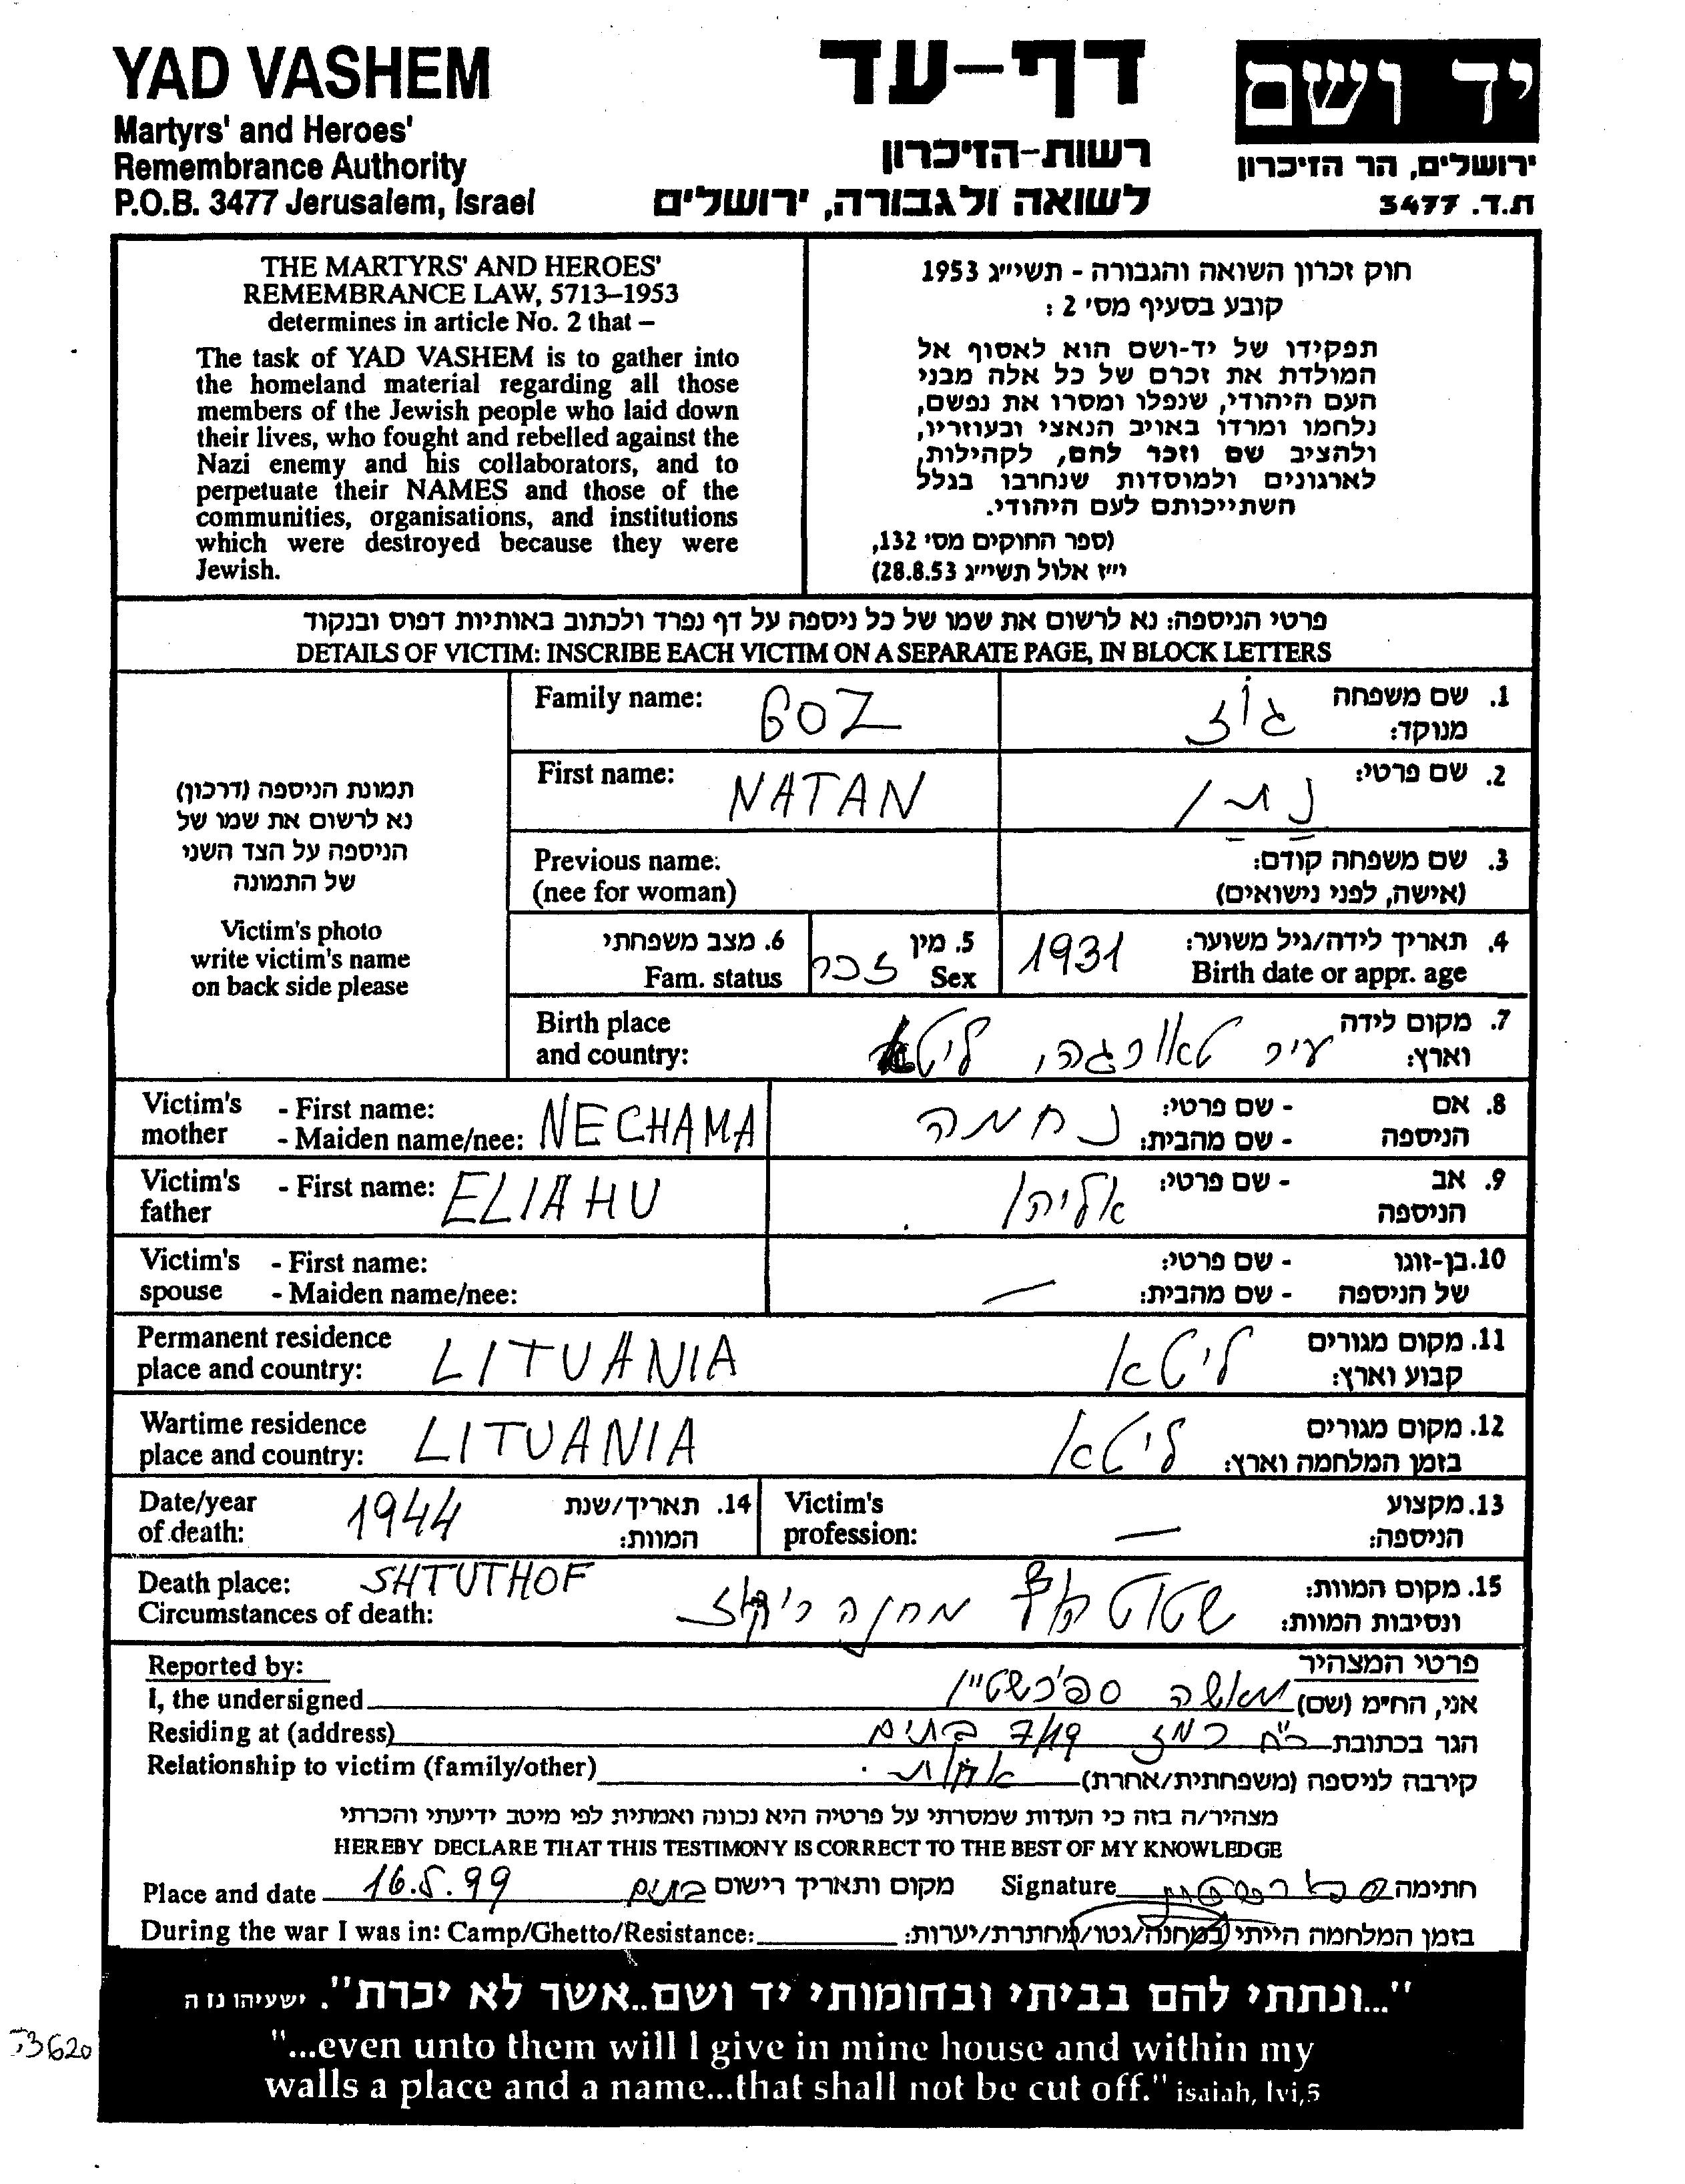 YAD VASHEM
Martyrs' and Heroes'
Remembrance Authority
P.O.B. 3477 Jerusalem, Israel
דף-עד
רשות-הזיכרון
לשואה ולגבורה, ירושלים
יד ושם
ירושלים, הר הזיכרון
ת.ד. 3477
THE MARTYRS' AND HEROES'
REMEMBRANCE LAW, 5713–1953
determines in article No. 2 that –
The task of YAD VASHEM is to gather into
the homeland material regarding all those
members of the Jewish people who laid down
their lives, who fought and rebelled against the
Nazi enemy and his collaborators, and to
perpetuate their NAMES and those of the
communities, organisations, and institutions
which were destroyed because they were
Jewish.
חוק זכרון השואה והגבורה - תשי״ג 1953
קובע בסעיף מס׳ 2 :
תפקידו של יד-ושם הוא לאסוף אל
המולדת את זכרם של כל אלה מבני
העם היהודי, שנפלו ומסרו את נפשם,
נלחמו ומרדו באויב הנאצי ובעוזריו,
ולהציב שם וזכר להם, לקהילות,
לארגונים ולמוסדות שנחרבו בגלל
השתייכותם לעם היהודי.
(ספר החוקים מס׳ 132,
י״ז אלול תשי״ג 28.8.53)
פרטי הניספה: נא לרשום את שמו של כל ניספה על דף נפרד ולכתוב באותיות דפוס ובנקוד
DETAILS OF VICTIM: INSCRIBE EACH VICTIM ON A SEPARATE PAGE, IN BLOCK LETTERS
תמונת הניספה (דרכון)
נא לרשום את שמו של
הניספה על הצד השני
של התמונה
Victim's photo
write victim's name
on back side please
Family name: GOZ גוֹז 1. שם משפחה
מנוקד:
First name: NATAN נַתַן 2. שם פרטי:
Previous name: 3. שם משפחה קודם:
(nee for woman) (אישה, לפני נישואים)
6. מצב משפחתי 5. מין 1931 4. תאריך לידה/גיל משוער:
Fam. status זכר Sex Birth date or appr. age
Birth place 7. מקום לידה
and country: עיר טאורגה, ליטא וארץ:
Victim's - First name: - שם פרטי: 8. אם
mother - Maiden name/nee: NECHAMA נחמה - שם מהבית: הניספה
Victim's - First name: ELIAHU אליהו - שם פרטי: 9. אב
father הניספה
Victim's - First name: - שם פרטי: 10. בן-זוגו
spouse - Maiden name/nee: — - שם מהבית: של הניספה
Permanent residence 11. מקום מגורים
place and country: LITUANIA ליטא קבוע וארץ:
Wartime residence 12. מקום מגורים
place and country: LITUANIA ליטא בזמן המלחמה וארץ:
Date/year 1944 14. תאריך/שנת Victim's 13. מקצוע
of death: המוות: profession: — הניספה:
Death place: SHTUTHOF שטוטהוף מחנה ריכוז 15. מקום המוות:
Circumstances of death: ונסיבות המוות:
Reported by: פרטי המצהיר
I, the undersigned מאשה אני, החי״מ (שם)
Residing at (address) 7/19 בת ים הגר בכתובת
Relationship to victim (family/other) אחות. קירבה לניספה (משפחתית/אחרת)
מצהיר/ה בזה כי העדות שמסרתי על פרטיה היא נכונה ואמתית לפי מיטב ידיעתי והכרתי
HEREBY DECLARE THAT THIS TESTIMONY IS CORRECT TO THE BEST OF MY KNOWLEDGE
Place and date 16.5.99 בת ים מקום ותאריך רישום Signature חתימה
During the war I was in: Camp/Ghetto/Resistance: בזמן המלחמה הייתי במחנה/גטו/מחתרת/יערות:
"...ונתתי להם בביתי ובחומותי יד ושם..אשר לא יכרת". ישעיהו נו ה
"...even unto them will I give in mine house and within my
walls a place and a name...that shall not be cut off." isaiah, lvi,5